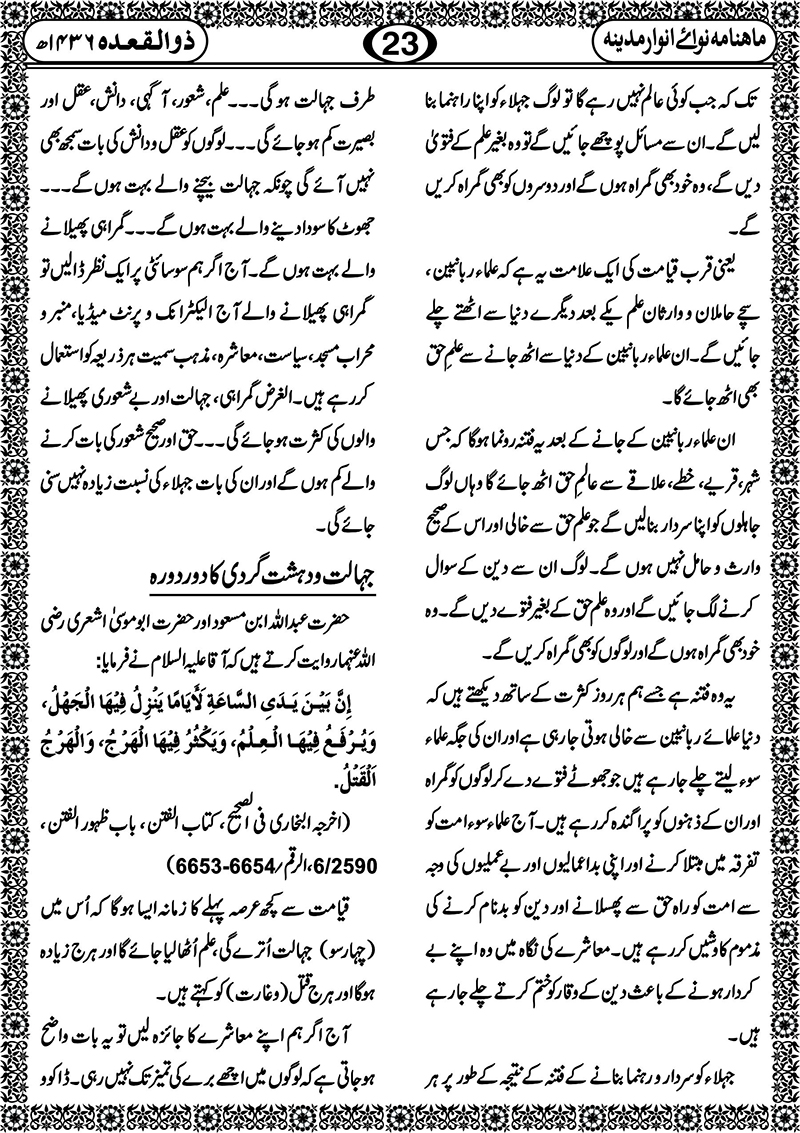 ماهنامه نوائے انوار مدینه
23
ذوالقعده ۱۴۳۶ھ
تک کہ جب کوئی عالم نہیں رہے گا تو لوگ جہلاء کو اپنا راہنما بنا
لیں گے۔ ان سے مسائل پوچھے جائیں گے تو وہ بغیر علم کے فتویٰ
دیں گے، وہ خود بھی گمراہ ہوں گے اور دوسروں کو بھی گمراہ کریں
گے۔
یعنی قرب قیامت کی ایک علامت یہ ہے کہ علماء ربانیین،
سچے حاملان و وارثان علم یکے بعد دیگرے دنیا سے اٹھتے چلے
جائیں گے۔ ان علماء ربانیین کے دنیا سے اٹھ جانے سے علمِ حق
بھی اٹھ جائے گا۔
ان علماء ربانیین کے جانے کے بعد یہ فتنہ رونما ہوگا کہ جس
شہر، قریے، خطے، علاقے سے عالمِ حق اٹھ جائے گا وہاں لوگ
جاہلوں کو اپنا سردار بنالیں گے جو علم حق سے خالی اور اس کے صحیح
وارث و حامل نہیں ہوں گے۔ لوگ ان سے دین کے سوال
کرنے لگ جائیں گے اور وہ علم حق کے بغیر فتوے دیں گے۔ وہ
خود بھی گمراہ ہوں گے اور لوگوں کو بھی گمراہ کریں گے۔
یہ وہ فتنہ ہے جسے ہم ہر روز کثرت کے ساتھ دیکھتے ہیں کہ
دنیا علمائے ربانیین سے خالی ہوتی جارہی ہے اور ان کی جگہ علماء
سوء لیتے چلے جارہے ہیں جو جھوٹے فتوے دے کر لوگوں کو گمراہ
اور ان کے ذہنوں کو پراگندہ کررہے ہیں۔ آج علماء سوء امت کو
تفرقہ میں مبتلا کرنے اور اپنی بداعمالیوں اور بے عملیوں کی وجہ
سے امت کو راہ حق سے پھسلانے اور دین کو بدنام کرنے کی
مذموم کاوشیں کررہے ہیں۔ معاشرے کی نگاہ میں وہ اپنے بے
کردار ہونے کے باعث دین کے وقار کو ختم کرتے چلے جارہے
ہیں۔
جہلاء کو سردار و رہنما بنانے کے فتنہ کے نتیجہ کے طور پر ہر
طرف جہالت ہوگی۔۔۔ علم، شعور، آگہی، دانش، عقل اور
بصیرت کم ہوجائے گی۔۔۔ لوگوں کو عقل و دانش کی بات سمجھ بھی
نہیں آئے گی چونکہ جہالت بیچنے والے بہت ہوں گے۔۔۔
جھوٹ کا سودا دینے والے بہت ہوں گے۔۔۔ گمراہی پھیلانے
والے بہت ہوں گے۔ آج اگر ہم سوسائٹی پر ایک نظر ڈالیں تو
گمراہی پھیلانے والے آج الیکٹرانک و پرنٹ میڈیا، منبر و
محراب مسجد، سیاست، معاشرہ، مذہب سمیت ہر ذریعہ کو استعمال
کررہے ہیں۔ الغرض گمراہی، جہالت اور بے شعوری پھیلانے
والوں کی کثرت ہوجائے گی۔۔۔ حق اور صحیح شعور کی بات کرنے
والے کم ہوں گے اور ان کی بات جہلاء کی نسبت زیادہ نہیں سنی
جائے گی۔
جہالت و دہشت گردی کا دور دورہ
حضرت عبداللہ ابن مسعود اور حضرت ابوموسیٰ اشعری رضی
اللہ عنہما روایت کرتے ہیں کہ آقا علیہ السلام نے فرمایا:
اِنَّ بَيْنَ يَدَىِ السَّاعَةِ لَأَيَّامًا يَنْزِلُ فِيْهَا الْجَهْلُ،
وَيُرْفَعُ فِيْهَا الْعِلْمُ، وَيَكْثُرُ فِيْهَا الْهَرْجُ، وَالْهَرْجُ
اَلْقَتْلُ.
(اخرجہ البخاری فی الصحیح، کتاب الفتن، باب ظہور الفتن،
6/2590، الرقم/6653-6654)
قیامت سے کچھ عرصہ پہلے کا زمانہ ایسا ہوگا کہ اُس میں
(چہارسو) جہالت اُترے گی، علم اُٹھالیا جائے گا اور ہرج زیادہ
ہوگا اور ہرج قتل (وغارت) کو کہتے ہیں۔
آج اگر ہم اپنے معاشرے کا جائزہ لیں تو یہ بات واضح
ہوجاتی ہے کہ لوگوں میں اچھے برے کی تمیز تک نہیں رہی۔ ڈاکو و